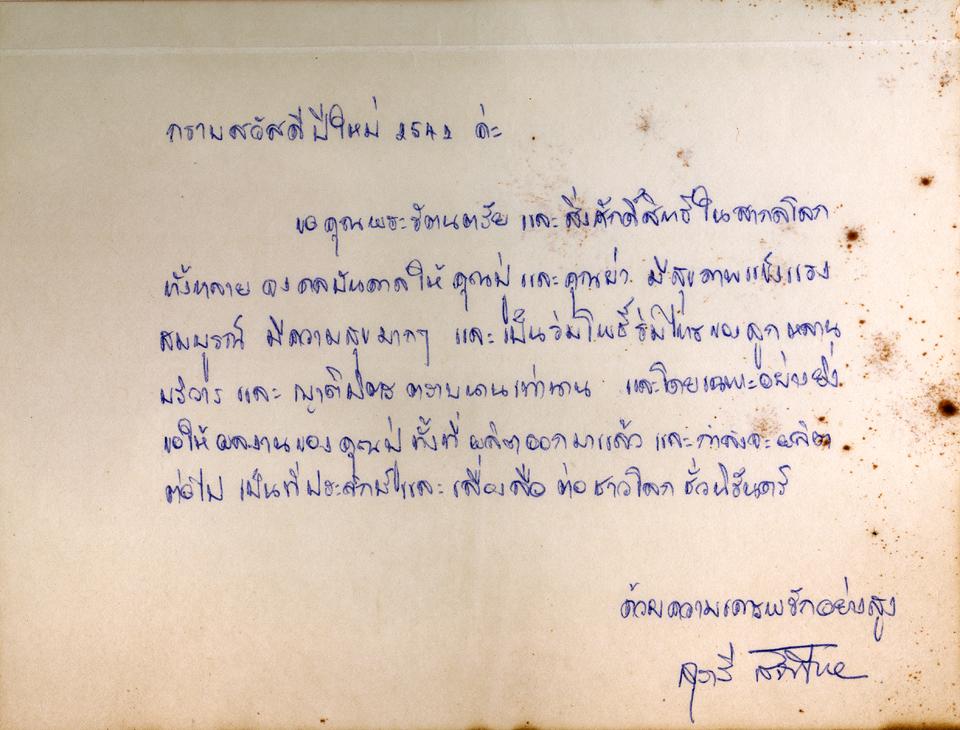 กราบสวัสดีปีใหม่ 2542 ค่ะ
ขอคุณพระรัตนตรัย และสิ่งศักดิ์สิทธิ์ในสากลโลก
ทั้งหลาย จงดลบันดาลให้ คุณปู่ และคุณย่า มีสุขภาพแข็งแรง
สมบูรณ์ มีความสุขมากๆ และเป็นร่มโพธิ์ร่มไทรของลูกหลาน
บริวาร และ ญาติมิตร ตราบนานเท่านาน และโดยเฉพาะอย่างยิ่ง
ขอให้ผลงานของคุณปู่ ทั้งที่ผลิตออกมาแล้ว และกำลังจะผลิต
ต่อไป เป็นที่ประจักษ์และ เลื่องลือ ต่อชาวโลก ชั่วนิรันดร์
ด้วยความเคารพรักอย่างสูง